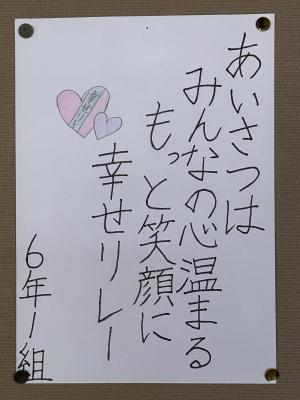 あいさつは
みんなの心温まる
もっと笑顔に
幸せリレー
幸せリレー
6年1組